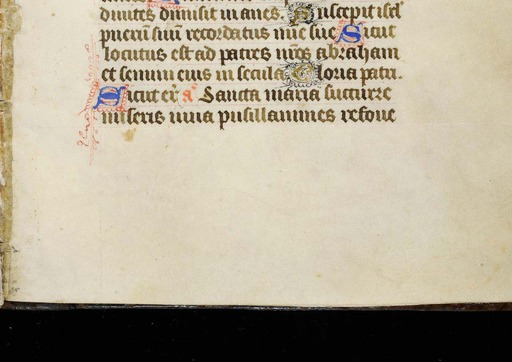 divites dimisit inanes. Suscepit isrl
puerū suū recordatus mīe sue Sicut
locutus est ad patres nr̄os abraham
et semini eius in secula. Gloria patri.
Sicut er̄. a. Sancta maria succurre
miseris iuva pusillanimes refove